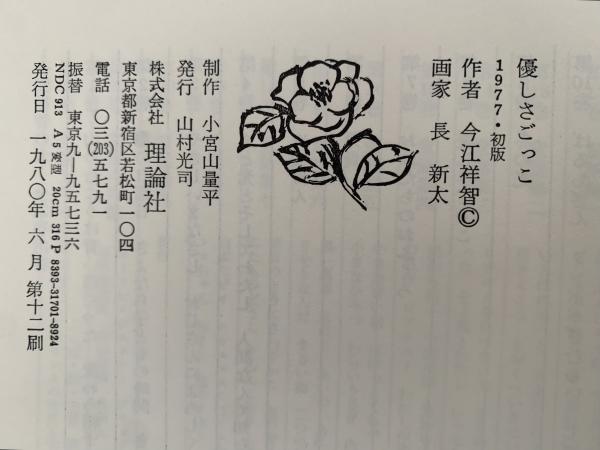 優しさごっこ
1977・初版
作者 今江祥智©
画家 長 新太
制作 小宮山量平
発行 山村光司
株式会社 理論社
東京都新宿区若松町一〇四
電話 〇三(203)五七九一
振替 東京九―九五七三六
NDC 913 A5変型 20cm 316P 8393-31701-8924
発行日 一九八〇年六月 第十二刷